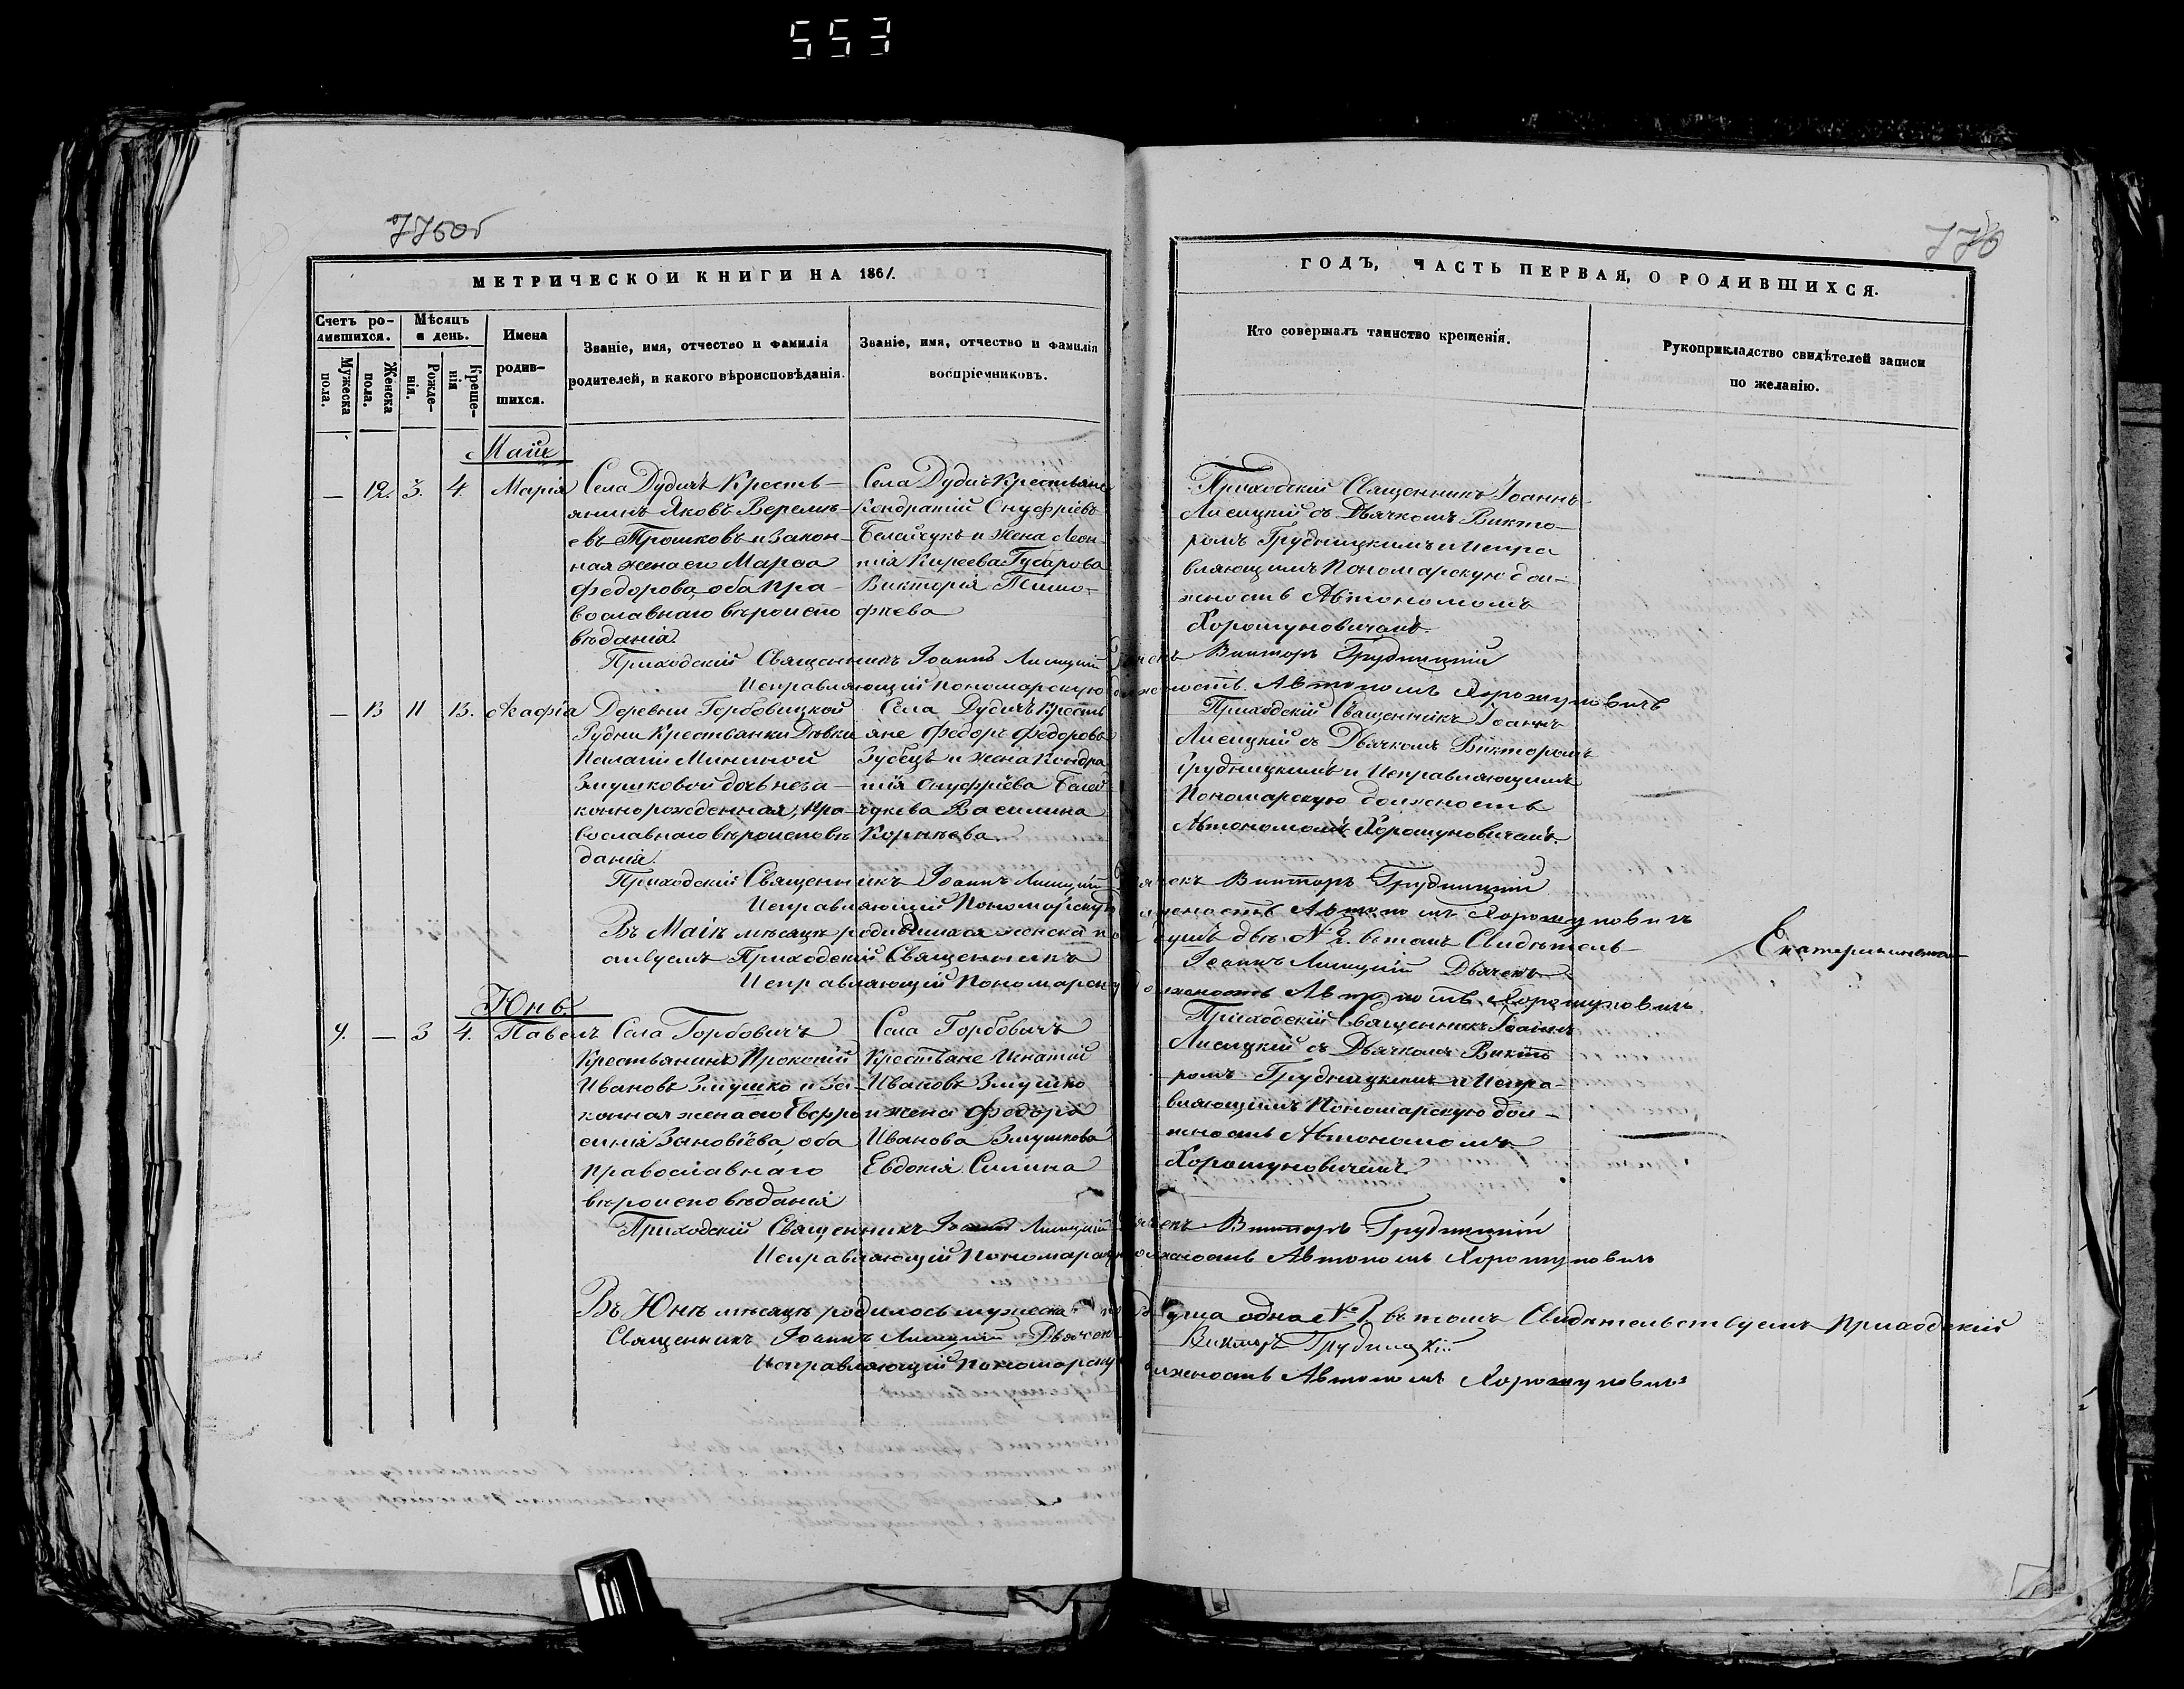 553
776об
776
МЕТРИЧЕСКОЙ КНИГИ НА 1861.
Счетъ ро-
дившихся.
Мужеска
пола.
Женска
пола.
Мѣсяцъ
и день.
Рожде-
нія.
Креще-
нія
Имена
родив-
шихся.
Званіе, имя, отчество и фамилія
родителей, и какого вѣроисповѣданія.
Званіе, имя, отчество и фамилія
воспріемниковъ.
ГОДЪ, ЧАСТЬ ПЕРВАЯ, О РОДИВШИХСЯ.
Кто совершалъ таинство крещенія.
Рукоприкладство свидѣтелей записи
по желанію.
Маій
— 12. 3. 4. Марія
Села Дудичъ Кресть-
янинъ Яковъ Веремѣ-
евъ Трошковъ и Закон-
ная жена его Марѳа
Федорова, оба пра-
вославнаго вѣроиспо
вѣданія.
Села Дудичъ Крестьяне
Кондратій Онуфріевъ
Белайчукъ и жена Леон-
тія Киреева Губарова
Викторія Тимо-
феева
Приходскій Священникъ Іоаннъ
Лисицкій съ Дьячкомъ Викто-
ромъ Грудницкимъ и Испра
вляющимъ Пономарскую дол-
жность Автономомъ
Хорошуновичемъ.
Приходскій Священникъ Іоаннъ Лисицкій Дьячекъ Викторъ Грудницкій
Исправляющій Пономарскую должность Автономъ Хорошуновичъ
— 13 11 13. Агафія
Деревни Горбовицкой
Рудни Крестьянки Дѣвки
Пелагіи Мининой
Змушковой дочь неза-
коннорожденная, пра-
вославнаго вѣроисповѣ
данія.
Села Дудичъ Кресть
яне Федоръ Федоровъ
Зубецъ и жена Кондра
тія Онуфріева Белай
чукева Василина
Корнѣева.
Приходскій Священникъ Іоаннъ
Лисицкій съ Дьячкомъ Викторомъ
Грудницкимъ и Исправляющимъ
Пономарскую должность
Автономомъ Хорошуновичемъ.
Приходскій Священникъ Іоаннъ Лисицкій Дьячекъ Викторъ Грудницкій
Исправляющій Пономарскую должность Автономъ Хорошуновичъ
Въ Маіѣ мѣсяцѣ родившихся женска пола душъ двѣ №2. въ томъ Свидѣтель-
ствуемъ Приходскій Священникъ Іоаннъ Лисицкій Дьячекъ
Исправляющій Пономарскую должность Автономъ Хорошуновичъ
Юнь
9. — 3 4. Павелъ
Села Горбовичъ
Крестьянинъ Прокопій
Ивановъ Змушко и За-
конная жена его Евфро
синія Зиновіева, оба
православнаго
вѣроисповѣданія
Села Горбовичъ
Крестьяне Игнатій
Ивановъ Змушко
и жена Федора
Иванова Змушкова
Евдокія Силина
Приходскій Священникъ Іоаннъ
Лисицкій съ Дьячкомъ Викто
ромъ Грудницкимъ и Испра-
вляющимъ Пономарскую дол-
жность Автономомъ
Хорошуновичемъ.
Приходскій Священникъ Іоаннъ Лисицкій Дьячекъ Викторъ Грудницкій
Исправляющій Пономарскую должность Автономъ Хорошуновичъ
Въ Юнѣ мѣсяцѣ родилось мужеска пола душа одна №1. въ томъ Свидѣтельствуемъ Приходскій
Священникъ Іоаннъ Лисицкій Дьячекъ Викторъ Грудницкій
Исправляющій Пономарскую должность Автономъ Хорошуновичъ